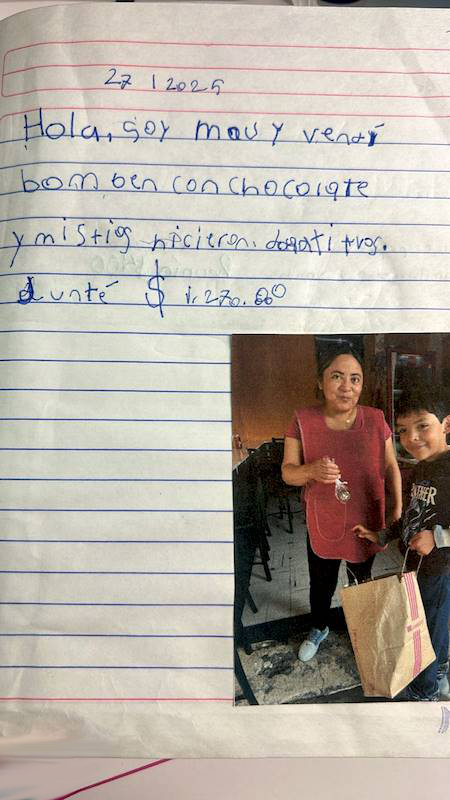 27 | 2025
Hola, soy mau y vendí
bomben con chocolate
y mis tios hicieron. donati tvos.
Junté $ 1.270.00